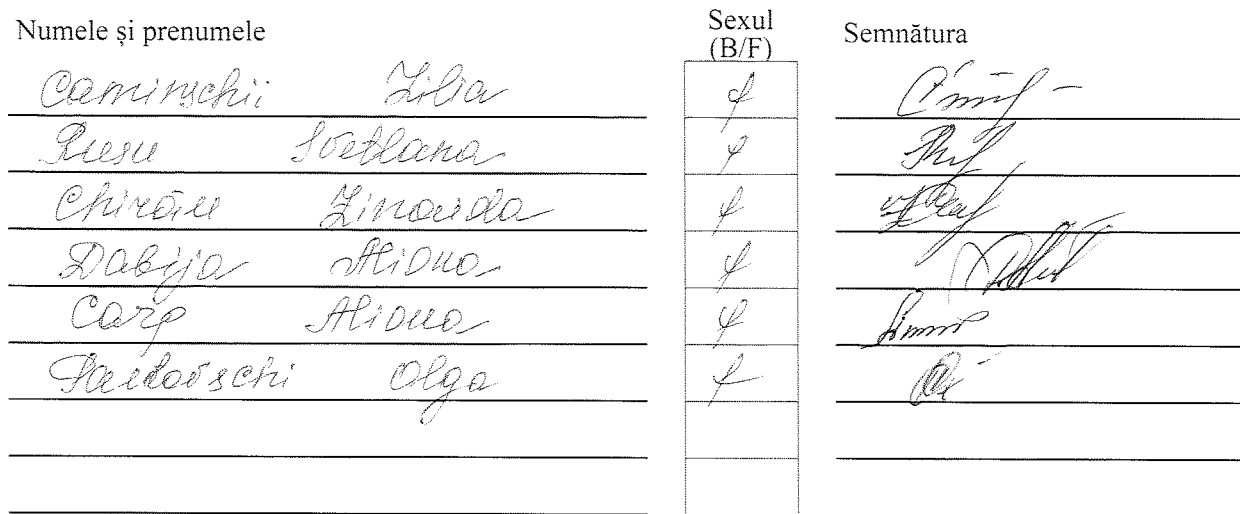 Numele și prenumele Sexul (B/F) Semnătura
Caminschii Lilia f
Rusu Svetlana f
Chirău Zinaida f
Dabija Aliona f
Carp Aliona f
Olga f